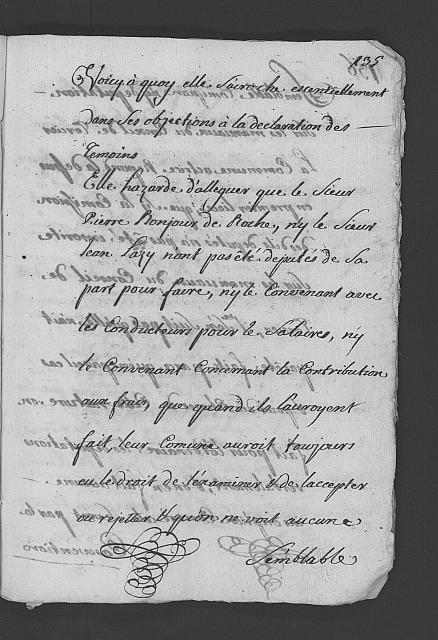 135
Voicy à quoy elle s'acroche essentiellement
dans ses objections à la declaration des
temoins
Elle hazarde d'alleguer que le Sieur
Pierre Bonjour de Roche, n'y le Sieur
Jean Lazy n'ont pas été deputés de Sa
part pour faire, n'y le Convenant avec
les Conducteurs pour le Salaires, n'y
le Convenant Concernant la Contribution
aux frais, que quand ils l'auroyent
fait leur Comune auroit toujours
eu le droit de l'éxaminer & de l'accepter
ou rejetter & qu'on ne voit aucune
Semblable